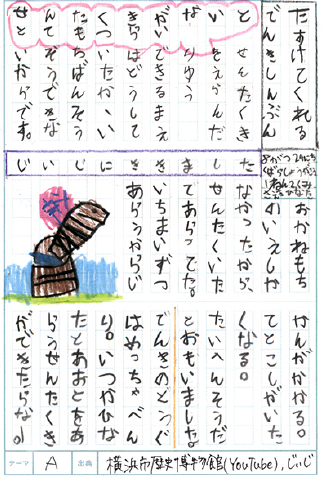 たすけてくれる
でんきしんぶん
せんたくきがないと
とてもつらい
せんたくき
をえらんだ
りゆう
できるまえ
はどうして
いたか、い
ちばんそう
ぞうできな
いからです。
じいじにききました
おかねもち
のいえしか
なかったから、
せんたくいた
であらってた。
いちまいずつ
あらうからじ
かんがかかる。
てとこしがいた
くなる。
たいへんそうだ
とおもいました。
でんきのどうぐ
はめっちゃべん
り。いつかひな
たとあおとをあ
らうせんたくき
ができたらな〜
テーマ A 出典 横浜市歴史博物館(YouTube),じいじ